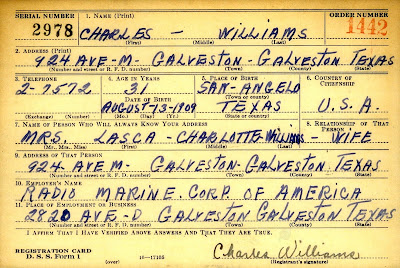 SERIAL NUMBER 1. NAME (Print) ORDER NUMBER
2978 CHARLES - WILLIAMS 1442
(First) (Middle) (Last)
2. ADDRESS (Print)
924 AVE-M- GALVESTON-GALVESTON TEXAS
(Number and street or R. F. D. number) (Town) (County) (State)
3. TELEPHONE 4. AGE IN YEARS 5. PLACE OF BIRTH 6. COUNTRY OF CITIZENSHIP
2-7572 31 SAN-ANGELO
DATE OF BIRTH (Town or county)
AUGUST-13-1909 TEXAS U.S.A.
(Exchange) (Number) (Mo.) (Day) (Yr.) (State or country)
7. NAME OF PERSON WHO WILL ALWAYS KNOW YOUR ADDRESS 8. RELATIONSHIP OF THAT PERSON
MRS. LASCA-CHARLOTTE-Williams- WIFE
(Mr., Mrs., Miss) (First) (Middle) (Last)
9. ADDRESS OF THAT PERSON
924 AVE M- GALVESTON-GALVESTON TEXAS
(Number and street or R. F. D. number) (Town) (County) (State)
10. EMPLOYER'S NAME
RADIO MARINE. CORP. OF AMERICA
11. PLACE OF EMPLOYMENT OR BUSINESS
2820 AVE-D GALVESTON GALVESTON TEXAS
(Number and street or R. F. D. number) (Town) (County) (State)
I AFFIRM THAT I HAVE VERIFIED ABOVE ANSWERS AND THAT THEY ARE TRUE.
Charles Williams
REGISTRATION CARD
D. S. S. Form 1 (over) 16-17105 (Registrant's signature)